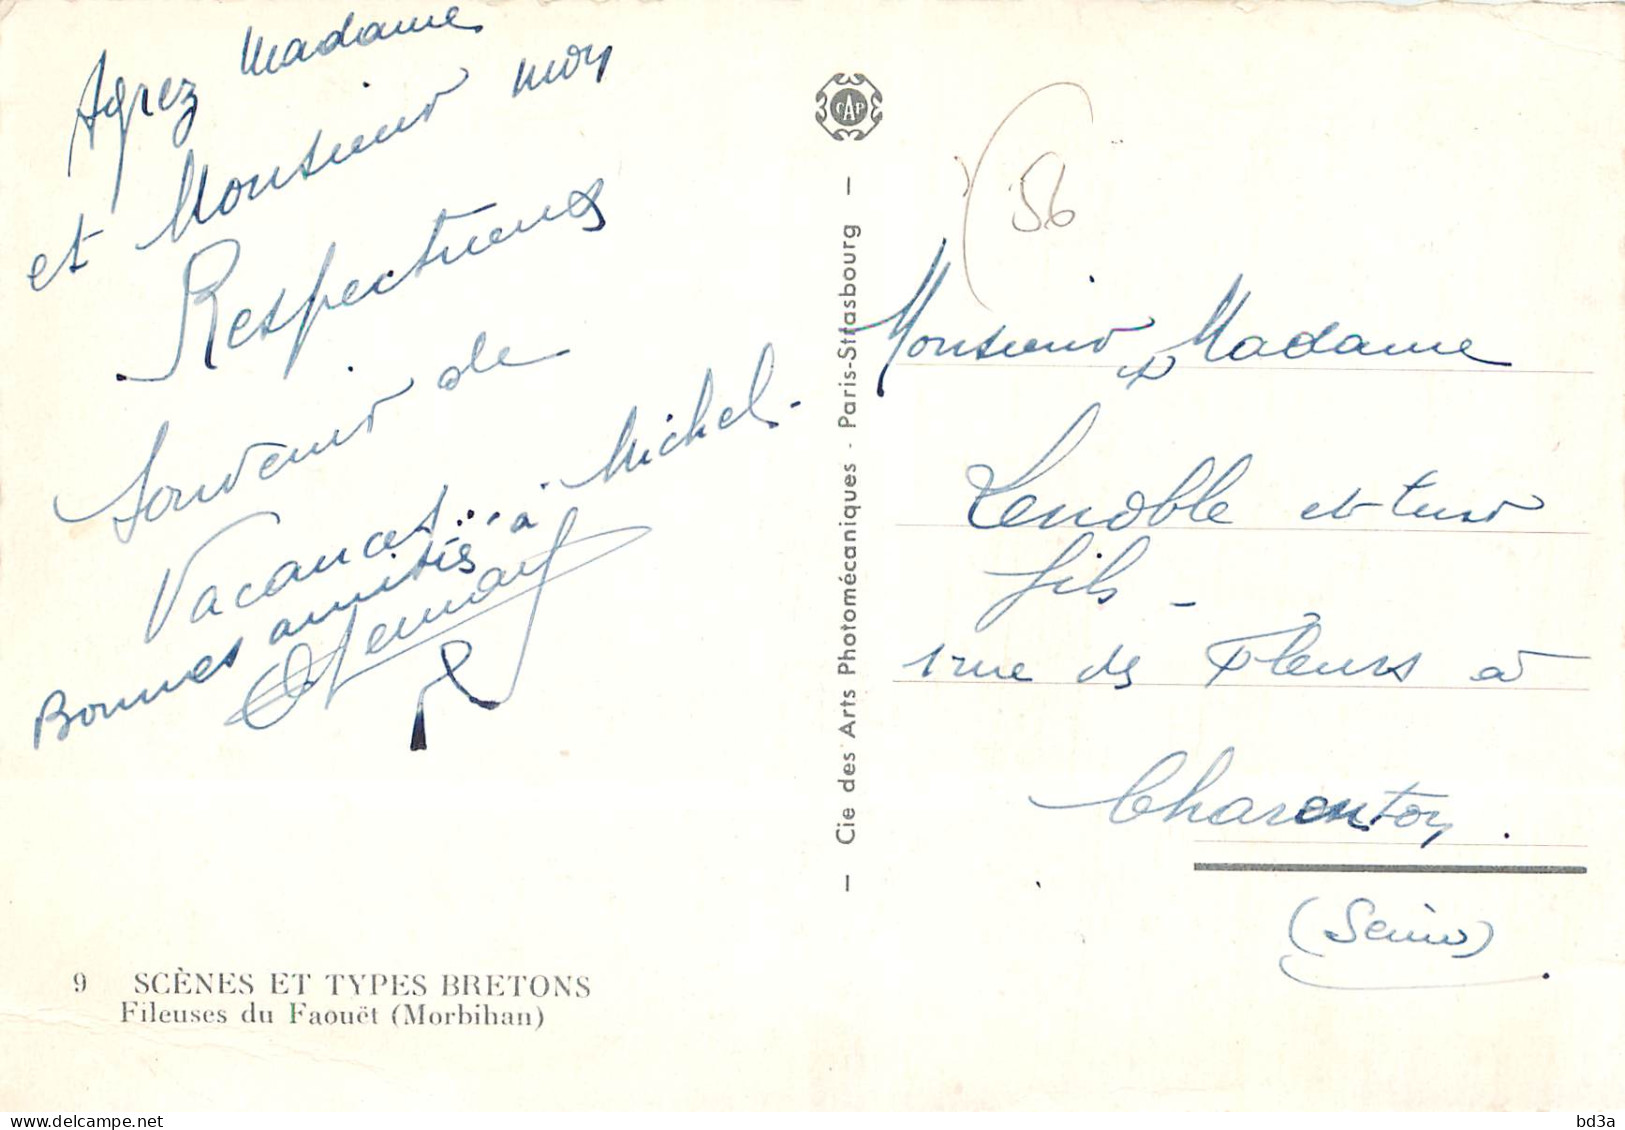 Agrez Madame
et Monsieur mon
Respectueux
Souvenir de
Vacances...
Bonnes amitiés à Michel-
CAP
56
Cie des Arts Photomécaniques - Paris-Strasbourg
Monsieur & Madame
Lenoble et leur
fils -
1 rue des Fleurs à
Charenton.
(Seine)
9 SCÈNES ET TYPES BRETONS
Fileuses du Faouët (Morbihan)
delcampe.net
bd3a